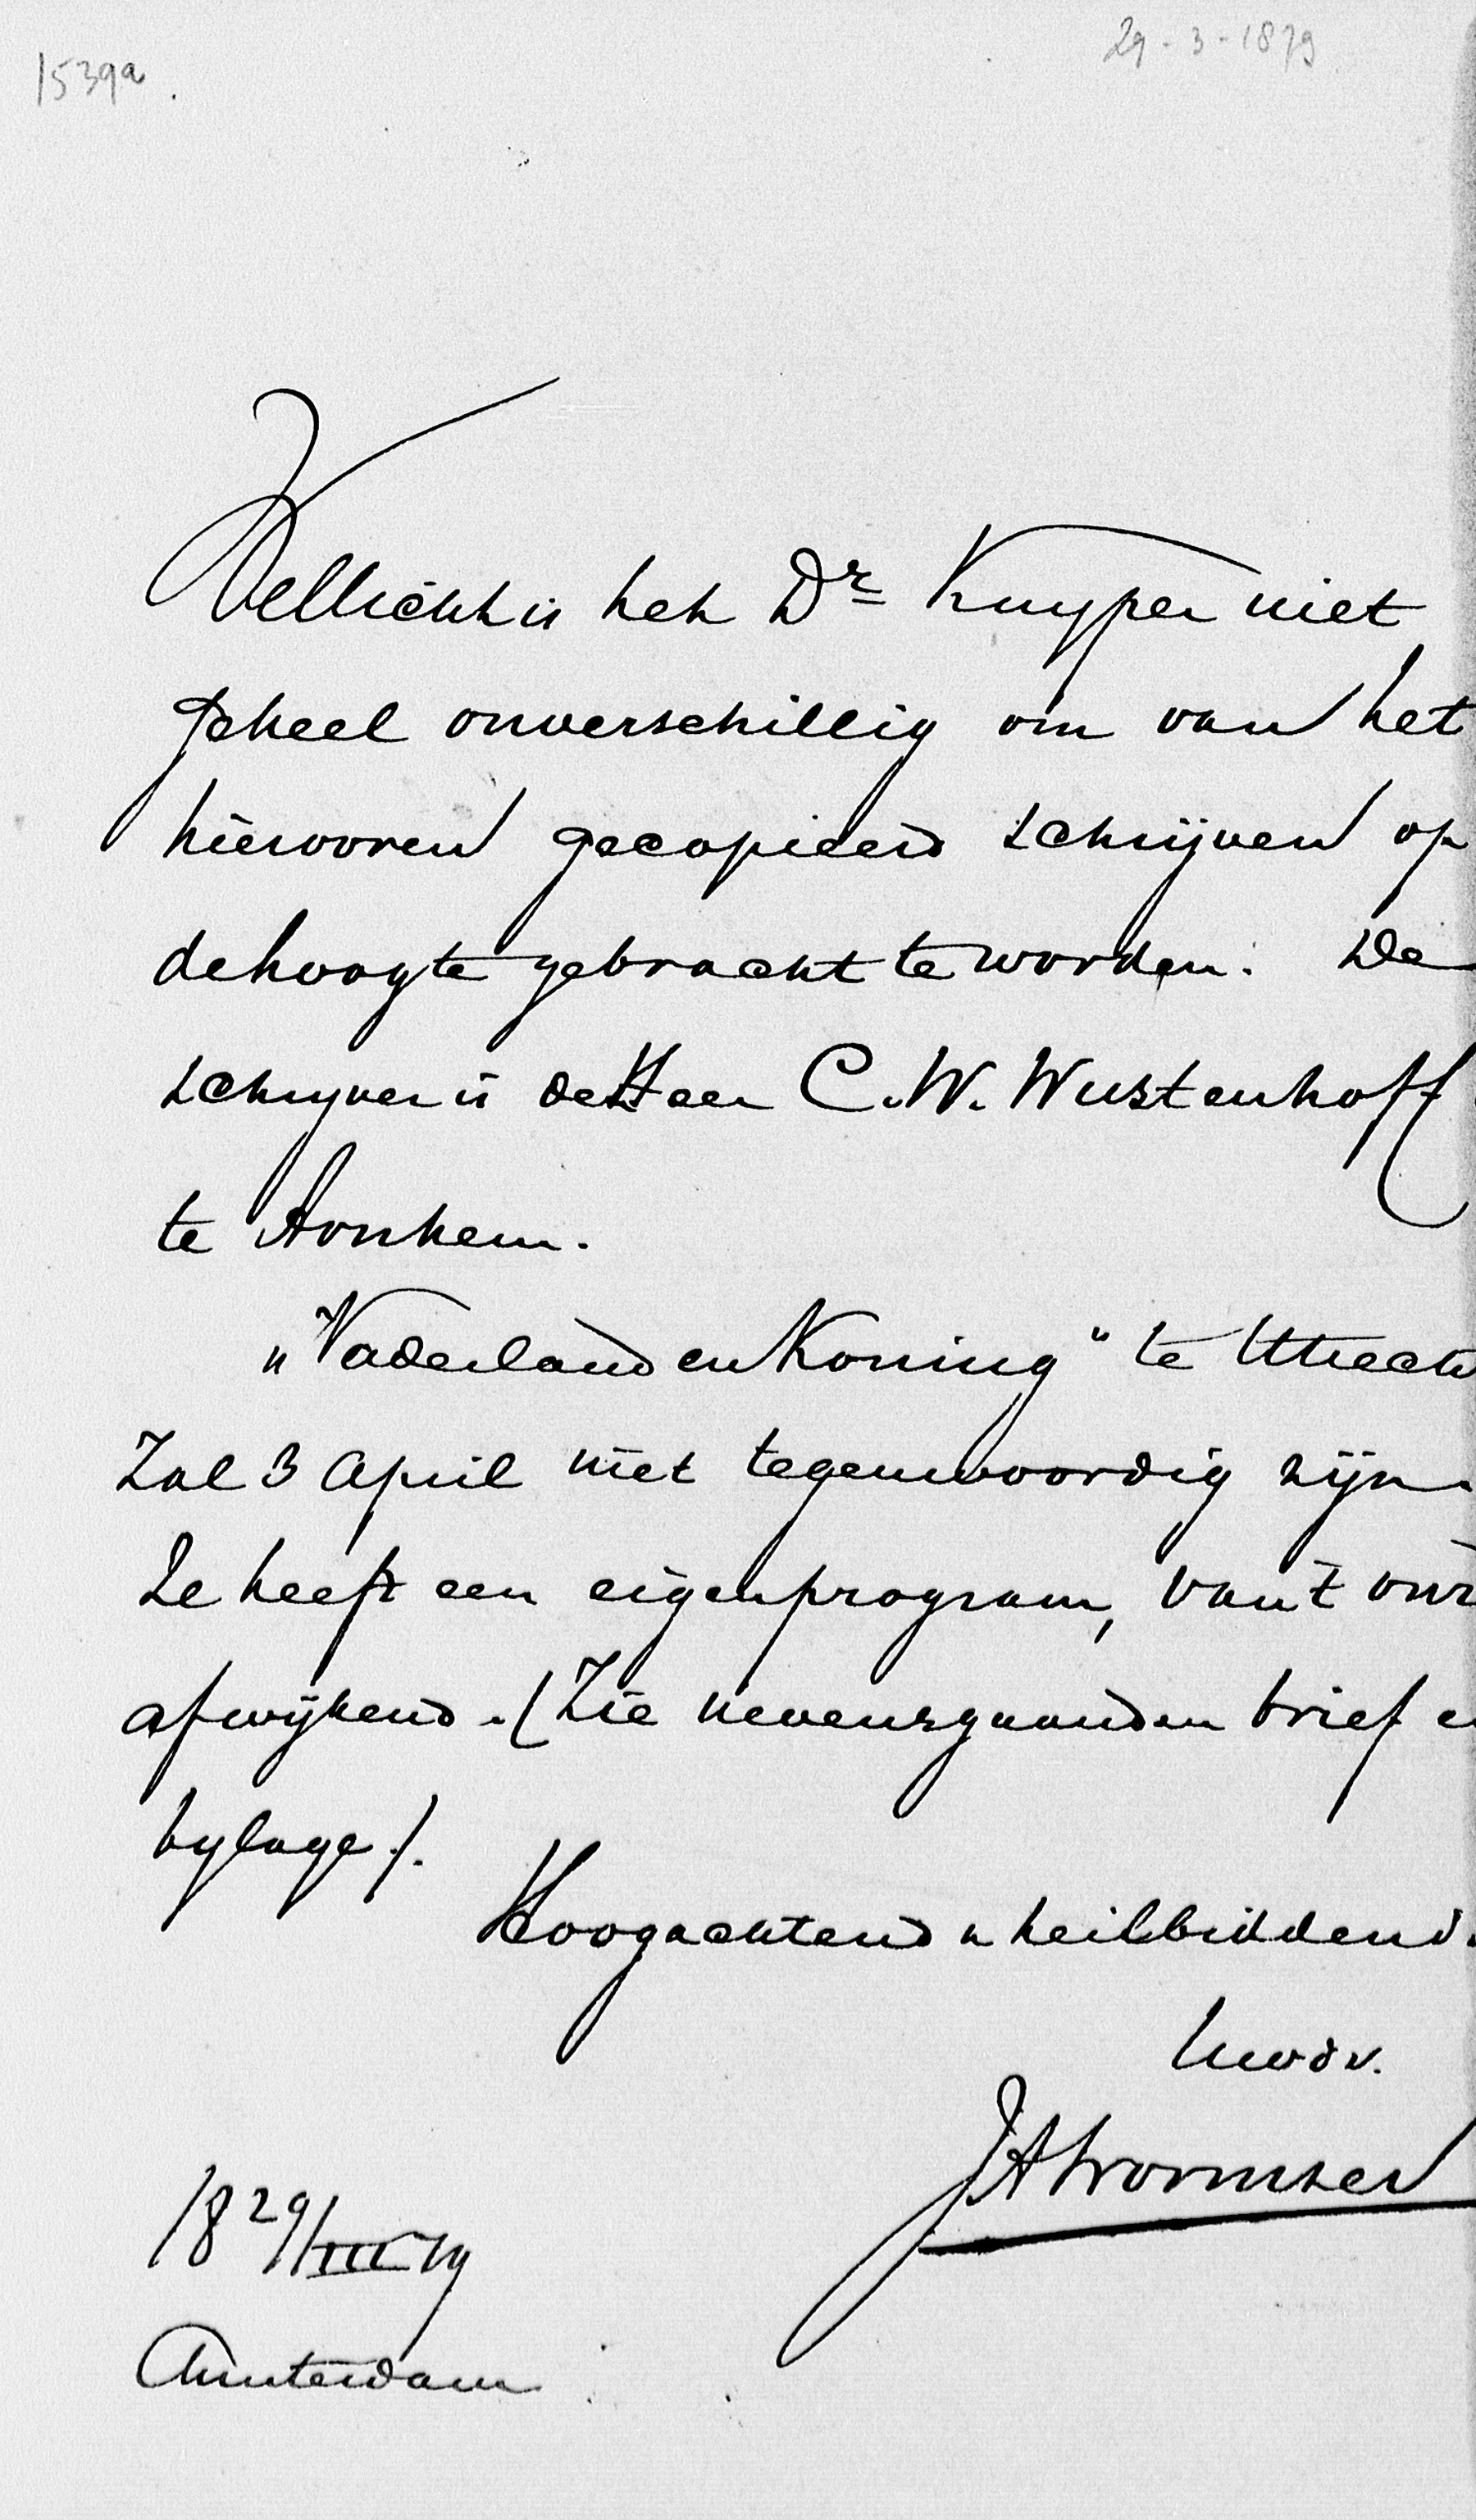 1539a.
29-3-1879
Wellicht is het Dr Kuyper niet
geheel onverschillig om van het
hiervoren gecopieerd schrijven op
de hoogte gebracht te worden. De
schrijver is de Heer C.W. Wustenhoff
te Arnhem.
„Vaderland en Koning" te Utrecht
Zal 3 April niet tegenwoordig zijn.
Ze heeft een eigen program, van 't onz
afwijkend. (Zie nevensgaanden brief en
bylage).
Hoogachtend & heilbiddend.
Uwdv.
JAWormser
18 29/III 79
Amsterdam